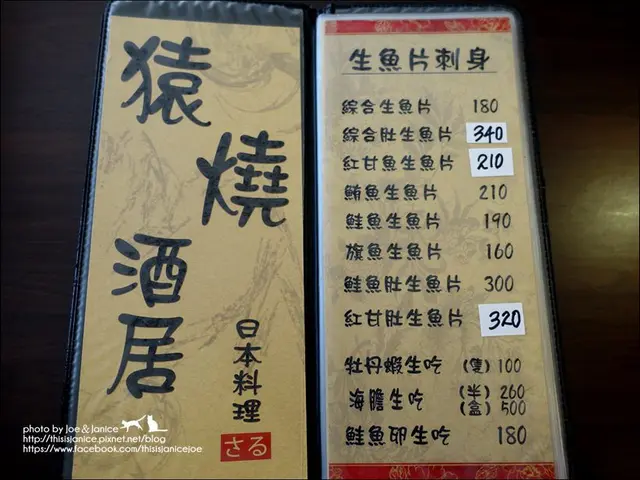 猿
燒
酒
居
日本料理
さる
生魚片刺身
綜合生魚片 180
綜合肚生魚片 340
紅甘魚生魚片 210
鮪魚生魚片 210
鮭魚生魚片 190
旗魚生魚片 160
鮭魚肚生魚片 300
紅甘肚生魚片 320
牡丹蝦生吃 (隻) 100
海膽生吃 (半) 260
(盒) 500
鮭魚卵生吃 180
photo by Joe & Janice
http://thisisjanice.pixnet.net/blog
https://www.facebook.com/thisisjanicejoe